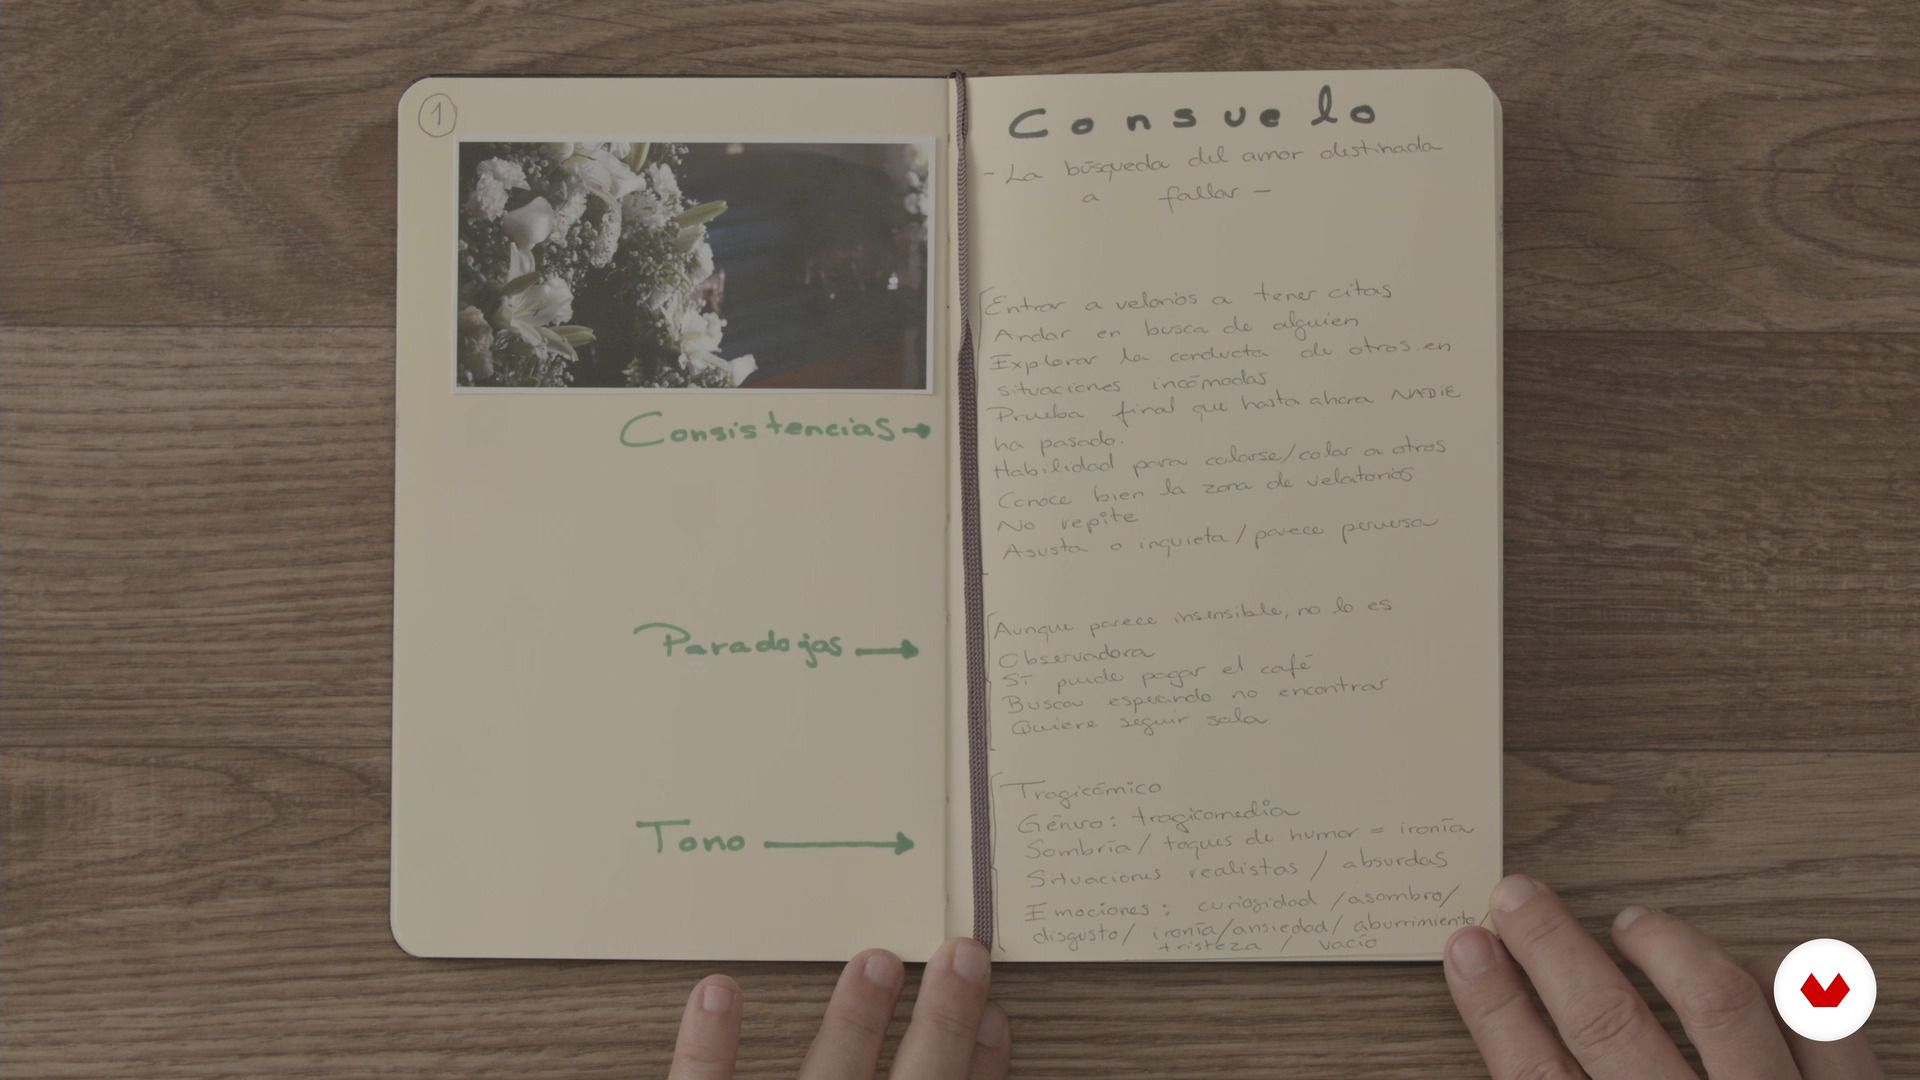 1
Consistencias →
Paradojas →
Tono →
Consuelo
- La búsqueda del amor destinada
a fallar -
Entrar a velorios a tener citas
Andar en busca de alguien
Explorar la conducta de otros en
situaciones incómodas
Prueba final que hasta ahora NADIE
ha pasado.
Habilidad para colarse/colar a otros
Conoce bien la zona de velatorios
No repite
Asusta o inquieta/parece perversa
Aunque parece insensible, no lo es
Observadora
Sí puede pagar el café
Buscar esperando no encontrar
Quiere seguir sola
Tragicómico
Género: tragicomedia
Sombría/ toques de humor = ironía
Situaciones realistas / absurdas
Emociones: curiosidad /asombro/
disgusto/ ironía/ansiedad/ aburrimiento/
tristeza / vacío